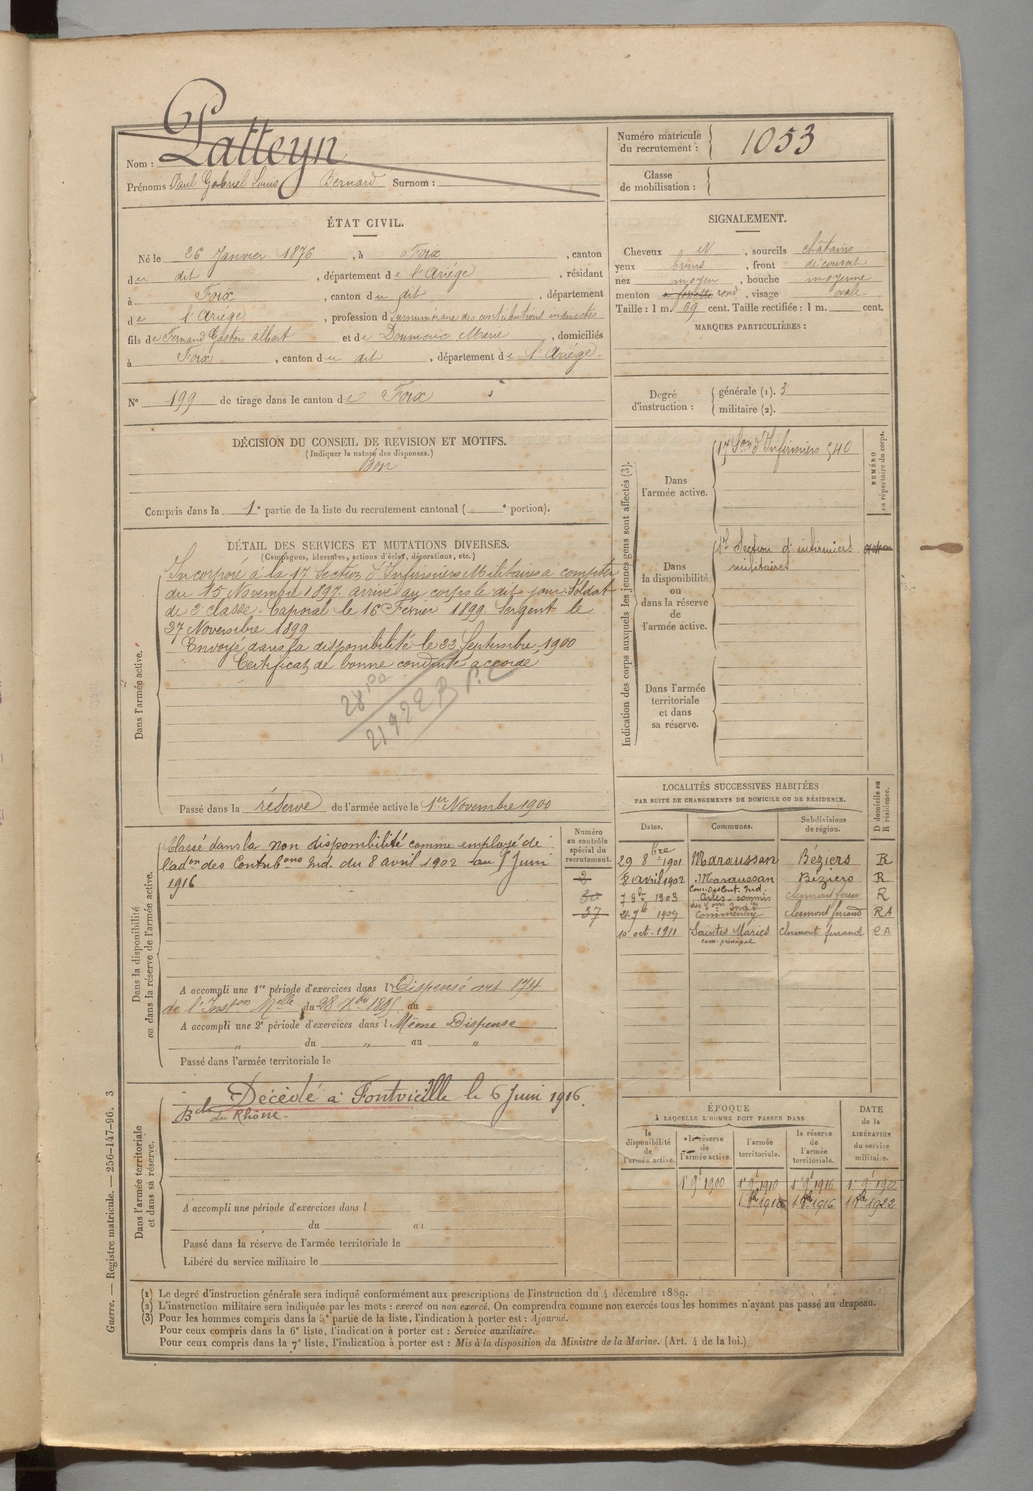 Nom : Patteyn
Prénoms Paul Gabriel Louis Bernard Surnom :
Numéro matricule du recrutement : 1053
Classe de mobilisation :
ÉTAT CIVIL.
Né le 26 Janvier 1876, à Foix, canton
du dit, département de l'Ariège, résidant
à Foix, canton du dit, département
de l'Ariège, profession d Surnuméraire des contributions indirectes
fils de Fernand Gaston Albert et de Doumenc Marie, domiciliés
à Foix, canton du dit, département de l'Ariège.
N° 199 de tirage dans le canton de Foix
SIGNALEMENT.
Cheveux N, sourcils châtains
yeux bruns, front découvert
nez moyen, bouche moyenne
menton rond, visage ovale
Taille : 1 m. 69 cent. Taille rectifiée : 1 m. cent.
MARQUES PARTICULIÈRES :
Degré d'instruction : générale (1). 3
militaire (2).
DÉCISION DU CONSEIL DE REVISION ET MOTIFS.
(Indiquer la nature des dispenses.)
Bon
Compris dans la 1e partie de la liste du recrutement cantonal ( e portion).
DÉTAIL DES SERVICES ET MUTATIONS DIVERSES.
(Campagnes, blessures, actions d'éclat, décorations, etc.)
Dans l'armée active.
Incorporé à la 17 Section d'Infirmiers Militaires à compter
du 15 Novembre 1897. arrivé au corps le dit jour. Soldat
de 2e classe. Caporal le 16 Février 1899. Sergent le
27 Novembre 1899
Envoyé dans la disponibilité le 22 Septembre 1900
Certificat de bonne conduite accordé
21922 B
Passé dans la réserve de l'armée active le 1er Novembre 1900
Indication des corps auxquels les jeunes gens sont affectés (3).
NUMÉRO au répertoire du corps.
Dans l'armée active.
17 Son d'Infirmiers 540
Dans la disponibilité ou dans la réserve de l'armée active.
17 Section d'infirmiers
militaires
Dans l'armée territoriale et dans sa réserve.
Dans la disponibilité ou dans la réserve de l'armée active.
Classé dans la non disponibilité comme employé de
l'adon des Contribons Ind. du 8 avril 1902 au 7 Juin
1916
Numéro au contrôle spécial du recrutement.
2
37
A accompli une 1re période d'exercices dans l Dispensé art 174
de l'Inston Melle du 28 Xbre 1895 du
A accompli une 2e période d'exercices dans l Même Dispense
" du " au "
Passé dans l'armée territoriale le
LOCALITÉS SUCCESSIVES HABITÉES
PAR SUITE DE CHANGEMENTS DE DOMICILE OU DE RÉSIDENCE.
Dates. Communes. Subdivisions de région. D domicile ou R résidence.
29 8bre 1901 Maraussan Béziers R
8 avril 1902 Maraussan Béziers R
7 9bre 1903 R
21 7b 1909 Commentry Clermont ferrand R A
10 oct. 1911 Saintes Maries Clermont ferrand R A
com. principal
Dans l'armée territoriale et dans sa réserve.
Décédé à Fontvieille le 6 Juin 1916.
B. du Rhône.
A accompli une période d'exercices dans l
du au
Passé dans la réserve de l'armée territoriale le
Libéré du service militaire le
ÉPOQUE
À LAQUELLE L'HOMME DOIT PASSER DANS
DATE de la LIBÉRATION du service militaire.
la disponibilité de l'armée active. la réserve de l'armée active. l'armée territoriale. la réserve de l'armée territoriale.
1r 9b 1900 1r 9b 1910 1r 9b 1916 1r 9b 1922
Guerre. — Registre matricule. — 256-147-96. 3
(1) Le degré d'instruction générale sera indiqué conformément aux prescriptions de l'instruction du 4 décembre 1889.
(2) L'instruction militaire sera indiquée par les mots : exercé ou non exercé. On comprendra comme non exercés tous les hommes n'ayant pas passé au drapeau.
(3) Pour les hommes compris dans la 5e partie de la liste, l'indication à porter est : Ajourné.
Pour ceux compris dans la 6e liste, l'indication à porter est : Service auxiliaire.
Pour ceux compris dans la 7e liste, l'indication à porter est : Mis à la disposition du Ministre de la Marine. (Art. 4 de la loi.)